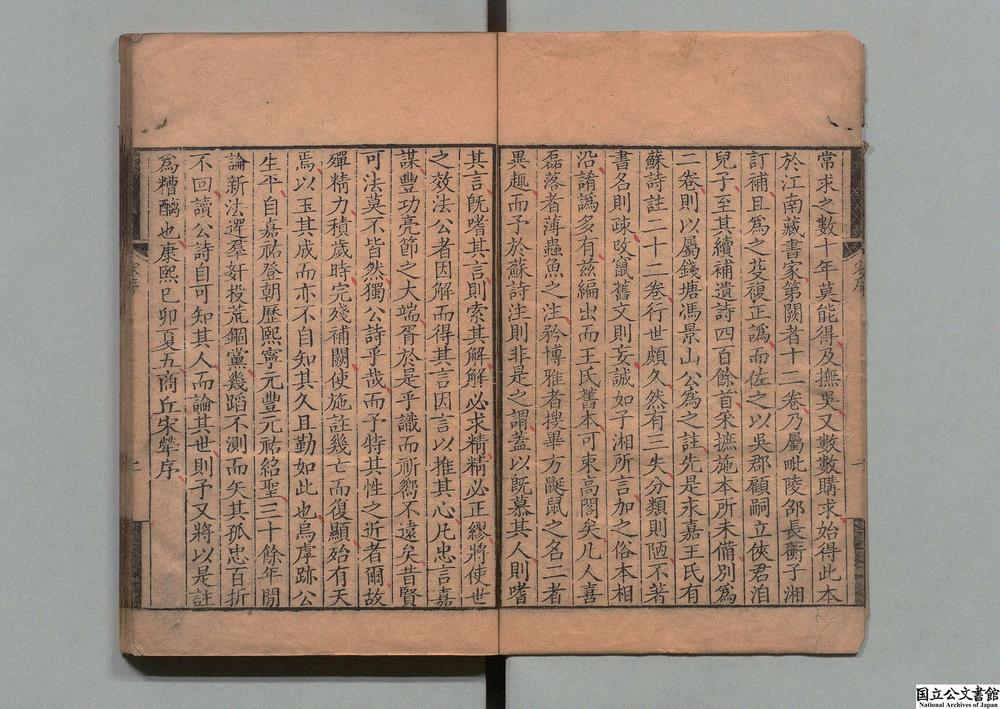 常求之數十年莫能得及撫吳又數數購求始得此本
於江南藏書家第闕者十二卷乃屬毗陵邵長蘅子湘
訂補且爲之芟複正譌而佐之以吳郡顧嗣立俠君洎
兒子至其續補遺詩四百餘首采摭施本所未備別爲
二卷則以屬錢塘馮景山公爲之註先是永嘉王氏有
蘇詩註二十二卷行世頗久然有三失分類則陋不著
書名則疎改竄舊文則妄誠如子湘所言加之俗本相
沿譌多有茲編出而王氏舊本可束高閣矣凡人喜
磊落者薄蟲魚之注矜博雅者搜畢方鼮鼠之名二者
異趣而予於蘇詩注則非是之謂蓋以旣慕其人則嗜
其言旣嗜其言則索其解解必求精精必正繆將使世
之效法公者因解而得其言因言以推其心凡忠言嘉
謀豐功亮節之大端胥於是乎識而斫嚮不遠矣昔賢
可法莫不皆然獨公詩乎哉而予特其性之近者爾故
殫精力積歲時完殘補闕使施註幾亡而復顯殆有天
焉以玉其成而亦不自知其久且勤如此也烏虖跡公
生平自嘉祐登朝歷熙寧元豐元祐紹聖三十餘年閒
論新法遻羣奸投荒錮黨幾蹈不測而矢其孤忠百折
不回讀公詩自可知其人而論其世則予又將以是註
爲糟醨也康熙己卯夏五商丘宋犖序
宋序
國立公文書館
National Archives of Japan